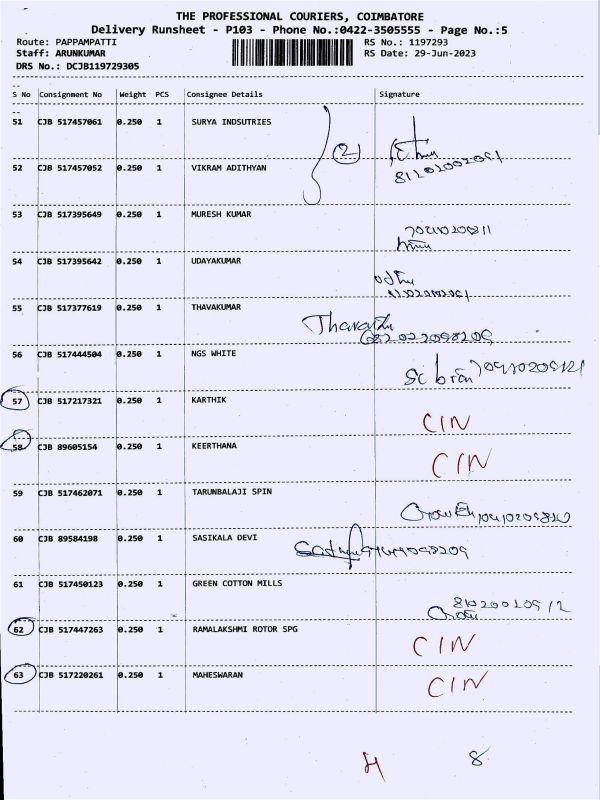 THE PROFESSIONAL COURIERS, COIMBATORE
Delivery Runsheet - P103 - Phone No.:0422-3505555 - Page No.:5
Route: PAPPAMPATTI RS No.: 1197293
Staff: ARUNKUMAR RS Date: 29-Jun-2023
DRS No.: DCJB119729305
S No Consignment No Weight PCS Consignee Details Signature
51 CJB 517457061 0.250 1 SURYA INDSUTRIES
2
52 CJB 517457052 0.250 1 VIKRAM ADITHYAN
53 CJB 517395649 0.250 1 MURESH KUMAR
54 CJB 517395642 0.250 1 UDAYAKUMAR
55 CJB 517377619 0.250 1 THAVAKUMAR
56 CJB 517444504 0.250 1 NGS WHITE
57 CJB 517217321 0.250 1 KARTHIK CIN
58 CJB 89605154 0.250 1 KEERTHANA CIN
59 CJB 517462071 0.250 1 TARUNBALAJI SPIN
60 CJB 89584198 0.250 1 SASIKALA DEVI
61 CJB 517450123 0.250 1 GREEN COTTON MILLS
62 CJB 517447263 0.250 1 RAMALAKSHMI ROTOR SPG CIN
63 CJB 517220261 0.250 1 MAHESWARAN CIN
8